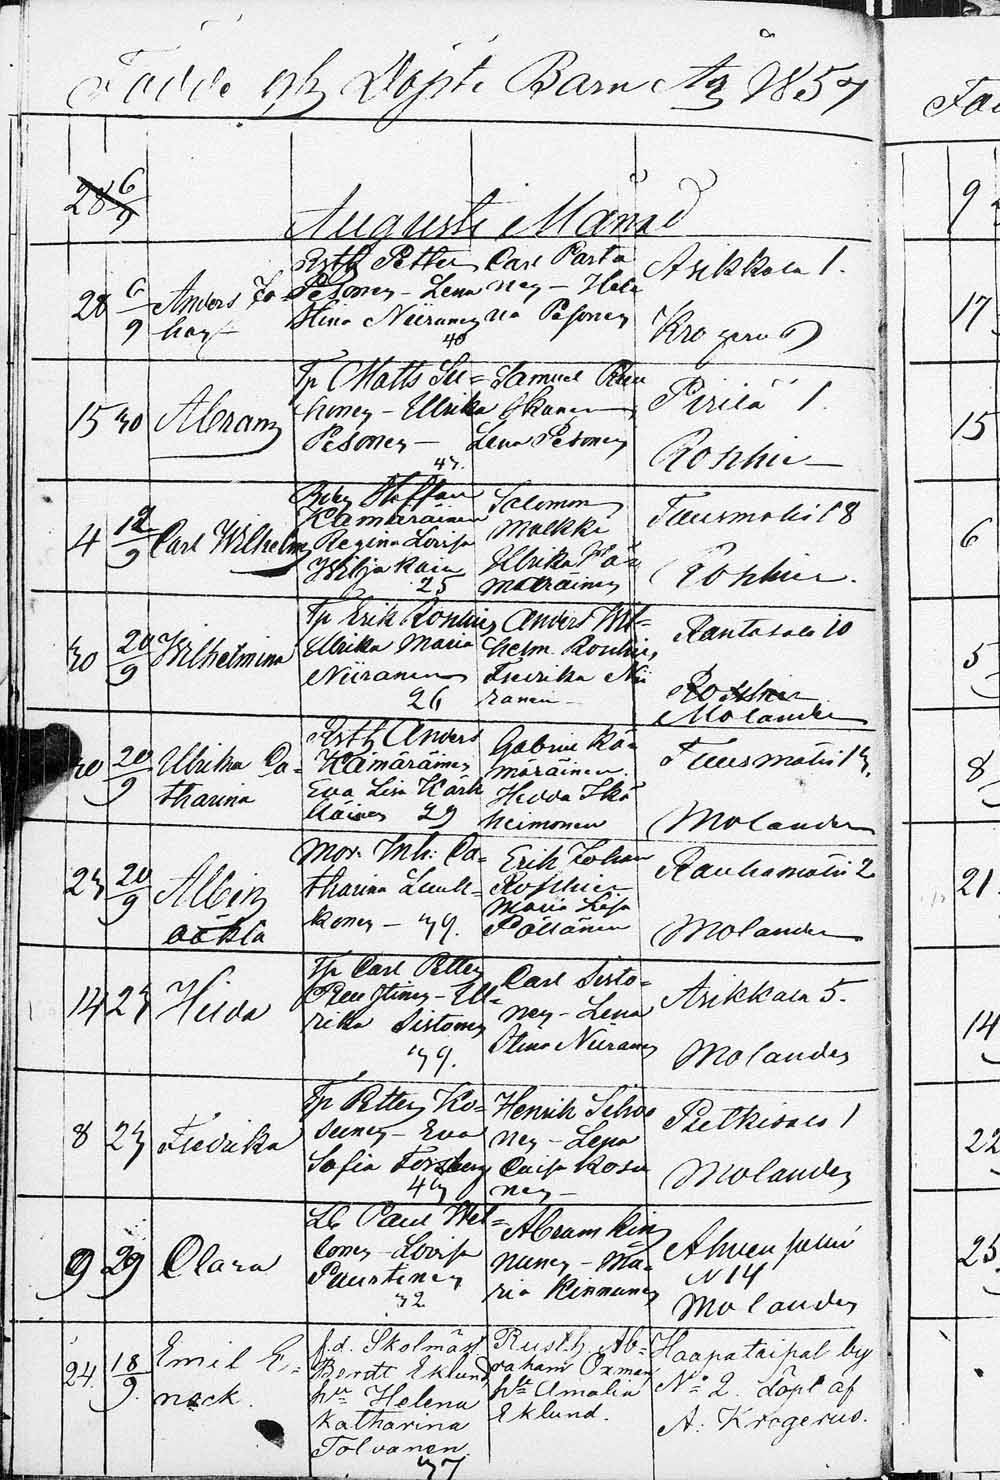 Födde och Döpte Barn År 1857
28 6/9
Augusti Månad
28 6/9 Anders Jo-
han
Rsth Petter
Pesonen - Lena
Stina Niiranen
40
Carl Parta
nen - Hele
na Pesonen
Asikkala 1.
Krogerus
15 30 Abram
Tp Matts Su=
honen - Ulrika
Pesonen -
43.
Samuel
Lena Pesonen
Pirilä 1.
Roschier
4 12/9 Carl Wilhelm
Staffan
Kämäräinen
Regina Lovisa
Wiljakain
25
Salomon
Malkki
Ulrika Kä=
märäinen
Tuusmäki 18
Roschier.
30 20/9 Wilhelmina
Tp Erik Roschier
Ulrika Maria
Niiranen
26
Anders Wil=
helm Roschier
Fredrika Nii
ranen -
Rantasalo 10
Roschier
Molander
30 20/9 Ulrika Ca=
tharina
Rsth Anders
Kämäräinen
Eva Lisa Kärk
käinen 29
Gabriel Kä=
märäinen.
Hedda Ikä
heimonen
Tuusmäki 13.
Molander
23 20/9 Albin
oäkta
Inh: Ca=
tharina Lauk=
konen - 39.
Erik Johan
Roschier
Maria Lisa
Pöllänen
Rauhamäki 2
Molander
14 23 Hilda
Tp Carl Petter
Paustinen - Ul=
rika Sistonen
39.
Carl Sisto=
nen - Lena
Stina Niiranen
Asikkala 5.
Molander
8 23 Fredrika
Tp Petter Ko=
sunen - Eva
Sofia Forsberg
43
Henrik Silvo
nen - Lena
Caisa Kosu
nen -
Pielkisalo 1
Molander
9 29 Clara
Paul Wel=
lonen - Lovisa
Paustinen
32
Abram Kin
nunen - Ma=
ria Kinnunen
N 14
Molander
24. 18/9. Emil E=
nock.
f.d. Skolmäst
Berndt Eklund
hu Helena
Katharina
Tolvanen.
37
Rusth. Ab=
raham Oxman
Amalia
Eklund.
Haapataipal by
No 2. Döpt af
A. Krogerus.
9
17
15
6
5
8
21.
14
22
25